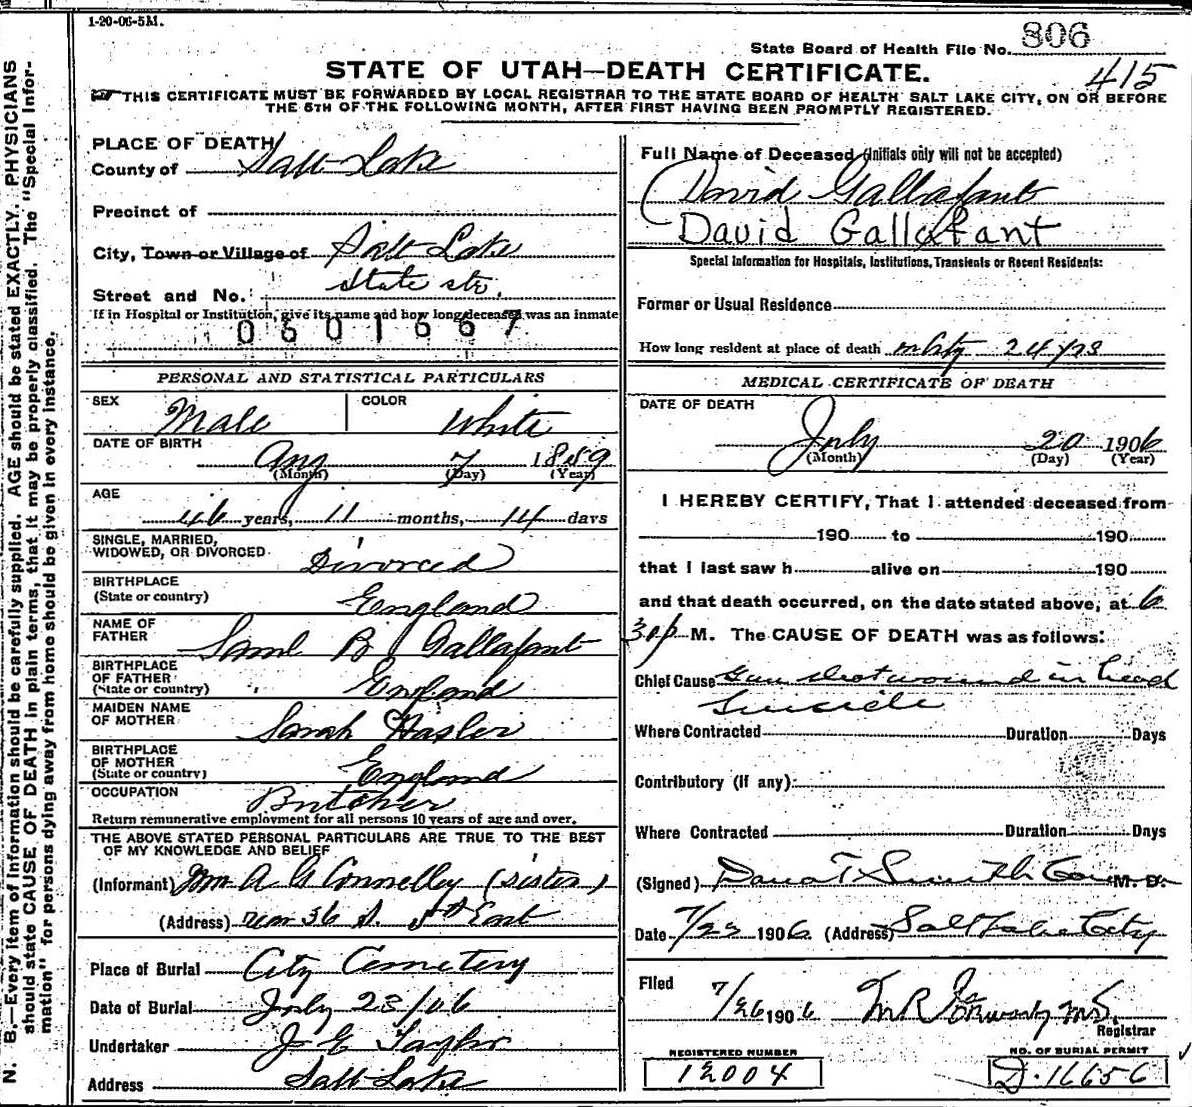 1-20-06-5M.
State Board of Health File No. 806
415
STATE OF UTAH—DEATH CERTIFICATE.
THIS CERTIFICATE MUST BE FORWARDED BY LOCAL REGISTRAR TO THE STATE BOARD OF HEALTH SALT LAKE CITY, ON OR BEFORE
THE 5TH OF THE FOLLOWING MONTH, AFTER FIRST HAVING BEEN PROMPTLY REGISTERED.
N. B.—Every item of information should be carefully supplied. AGE should be stated EXACTLY. PHYSICIANS
should state CAUSE OF DEATH in plain terms, that it may be properly classified. The "Special Infor-
mation" for persons dying away from home should be given in every instance.
PLACE OF DEATH
County of Salt Lake
Precinct of
City, Town or Village of Salt Lake
State str.
Street and No.
If in Hospital or Institution, give its name and how long deceased was an inmate
0601667
PERSONAL AND STATISTICAL PARTICULARS
SEX Male COLOR White
DATE OF BIRTH
Aug 7 1859
(Month) (Day) (Year)
AGE
46 years, 11 months, 14 days
SINGLE, MARRIED,
WIDOWED, OR DIVORCED Divorced
BIRTHPLACE
(State or country) England
NAME OF
FATHER Saml B Gallafant
BIRTHPLACE
OF FATHER
(State or country) England
MAIDEN NAME
OF MOTHER Sarah Hasler
BIRTHPLACE
OF MOTHER
(State or country) England
OCCUPATION Butcher
Return remunerative employment for all persons 10 years of age and over.
THE ABOVE STATED PERSONAL PARTICULARS ARE TRUE TO THE BEST
OF MY KNOWLEDGE AND BELIEF
(Informant) A G Connelley (sister)
(Address) rear 36 S. 5th East
Place of Burial City Cemetery
Date of Burial July 23/06
Undertaker J E Taylor
Address Salt Lake
Full Name of Deceased (Initials only will not be accepted)
(David Gallafant
David Gallafant
Special Information for Hospitals, Institutions, Transients or Recent Residents:
Former or Usual Residence
How long resident at place of death 24 yrs
MEDICAL CERTIFICATE OF DEATH
DATE OF DEATH
July 20 1906
(Month) (Day) (Year)
I HEREBY CERTIFY, That I attended deceased from
190 to 190
that I last saw h alive on 190
and that death occurred, on the date stated above, at 6
30 p M. The CAUSE OF DEATH was as follows:
Chief Cause Gun shot wound in head
Suicide
Where Contracted Duration Days
Contributory (if any):
Where Contracted Duration Days
(Signed) Dana T Smith M. D.
Date 7/23 1906 (Address) Salt Lake City
Filed 7/26 1906 M R
Registrar
REGISTERED NUMBER NO. OF BURIAL PERMIT
12004 D.16656